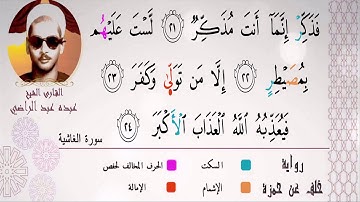 فَذَكِّرْ إِنَّمَآ أَنتَ مُذَكِّرٌ ٢١ لَّسْتَ عَلَيْهُم
بِمُصَيْطِرٍ ٢٢ إِلَّا مَن تَوَلَّىٰ وَكَفَرَ ٢٣
فَيُعَذِّبُهُ اللَّهُ الْعَذَابَ الْأَكْبَرَ ٢٤
القارئ الشيخ
عبده عبد الراضي
سورة الغاشية
رواية
خلف عن حمزة
السكت
الحرف المخالف لحفص
الإشمام
الإمالة